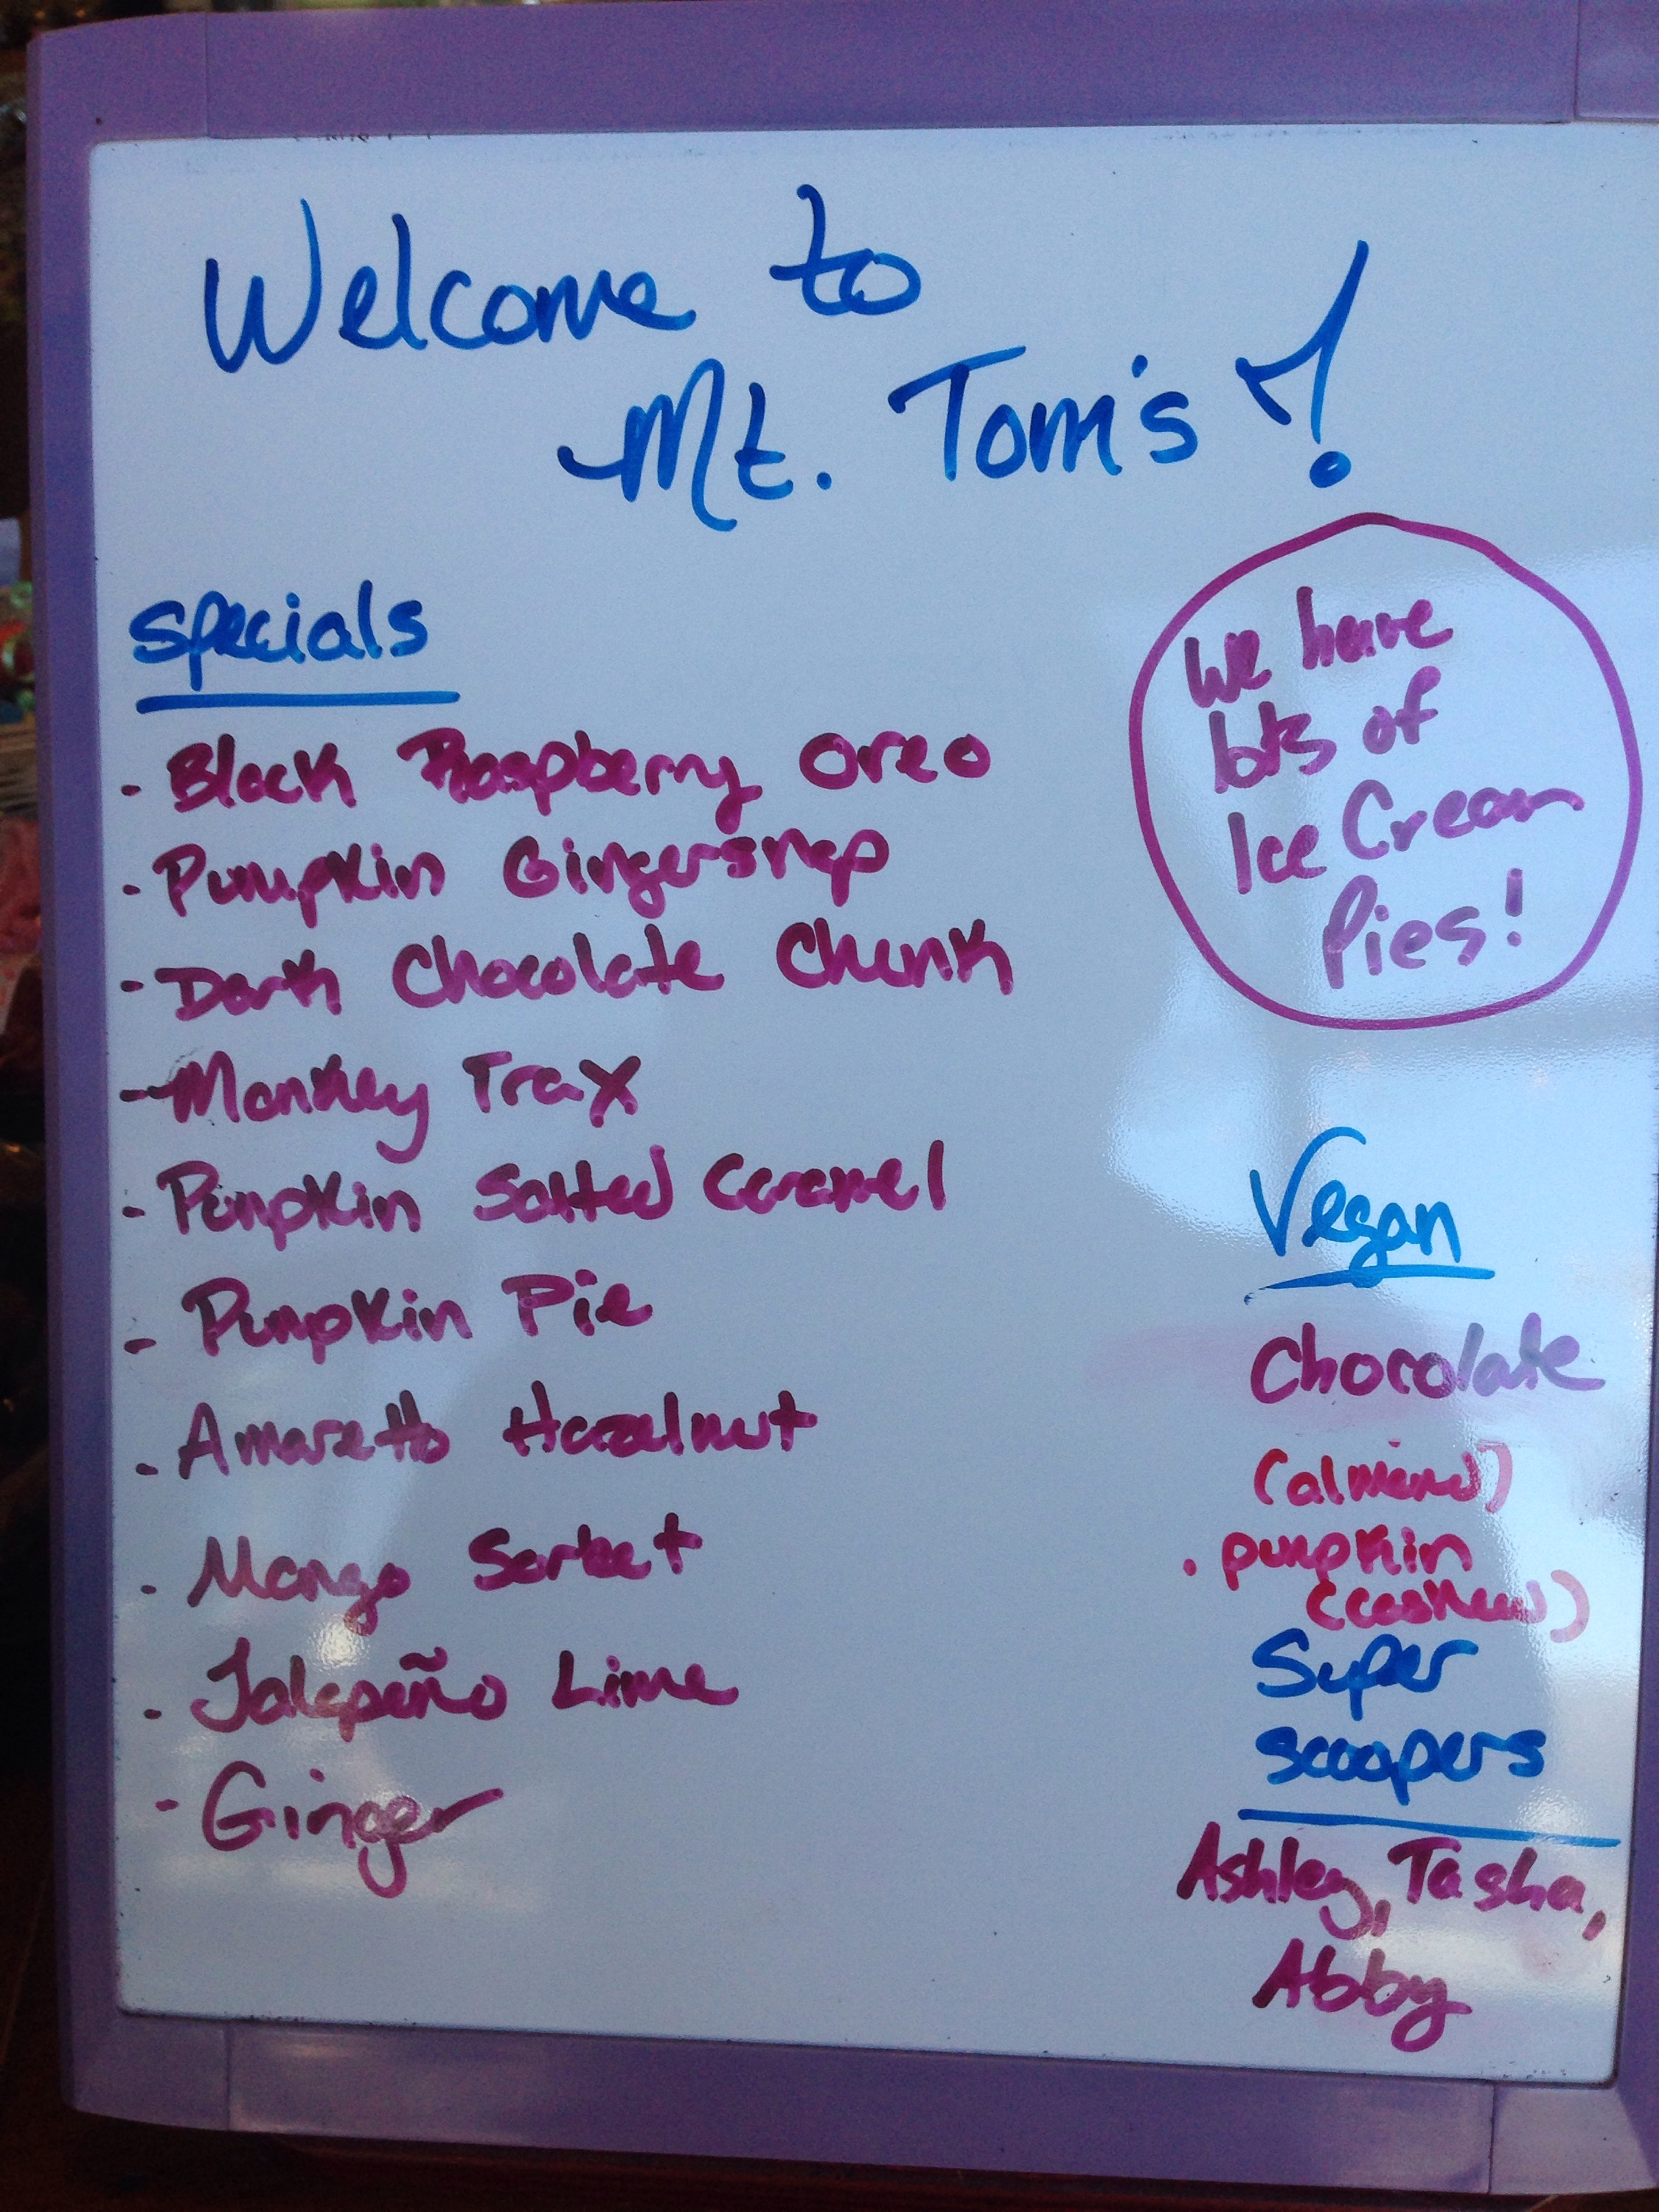 Welcome to
Mt. Tom's!
Specials
- Black Raspberry Oreo
- Pumpkin Gingersnap
- Dark Chocolate Chunk
- Monkey Trax
- Pumpkin Salted Caramel
- Pumpkin Pie
- Amaretto Hazelnut
- Mango Sorbet
- Jalapeño Lime
- Ginger
We have
lots of
Ice Cream
Pies!
Vegan
Chocolate
(almond)
. pumpkin
(cashew)
Super
scoopers
Ashley, Tasha,
Abby